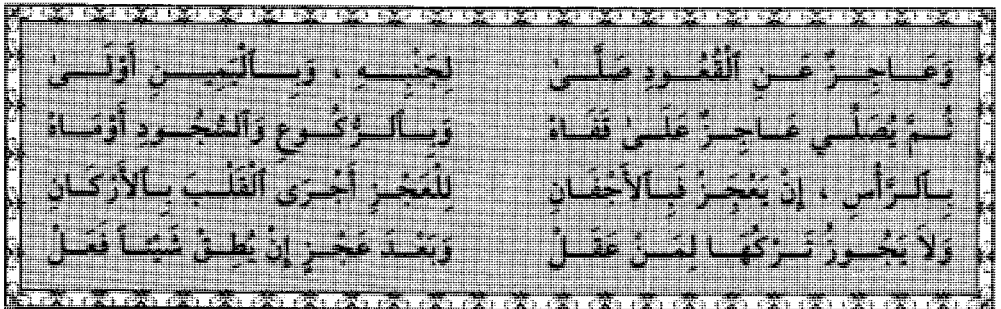 وَعَاجِزٌ عَنِ ٱلْقُعُودِ صَلَّىٰ لِجَنْبِهِ ، وَبِٱلْيَمِينِ أَوْلَىٰ
ثُمَّ يُصَلِّي عَاجِزٌ عَلَىٰ قَفَاهُ وَبِٱلرُّكُوعِ وَٱلسُّجُودِ أَوْمَاهُ
بِٱلرَّأْسِ ، إِنْ يَعْجَزْ فَبِٱلأَجْفَانِ لِلْعَجْزِ أَجْرَى ٱلْقَلْبَ بِٱلأَرْكَانِ
وَلاَ يَجُوزُ تَرْكُهَا لِمَنْ عَقَلْ وَبَعْدَ عَجْزٍ إِنْ يُطِقْ شَيْئاً فَعَلْ